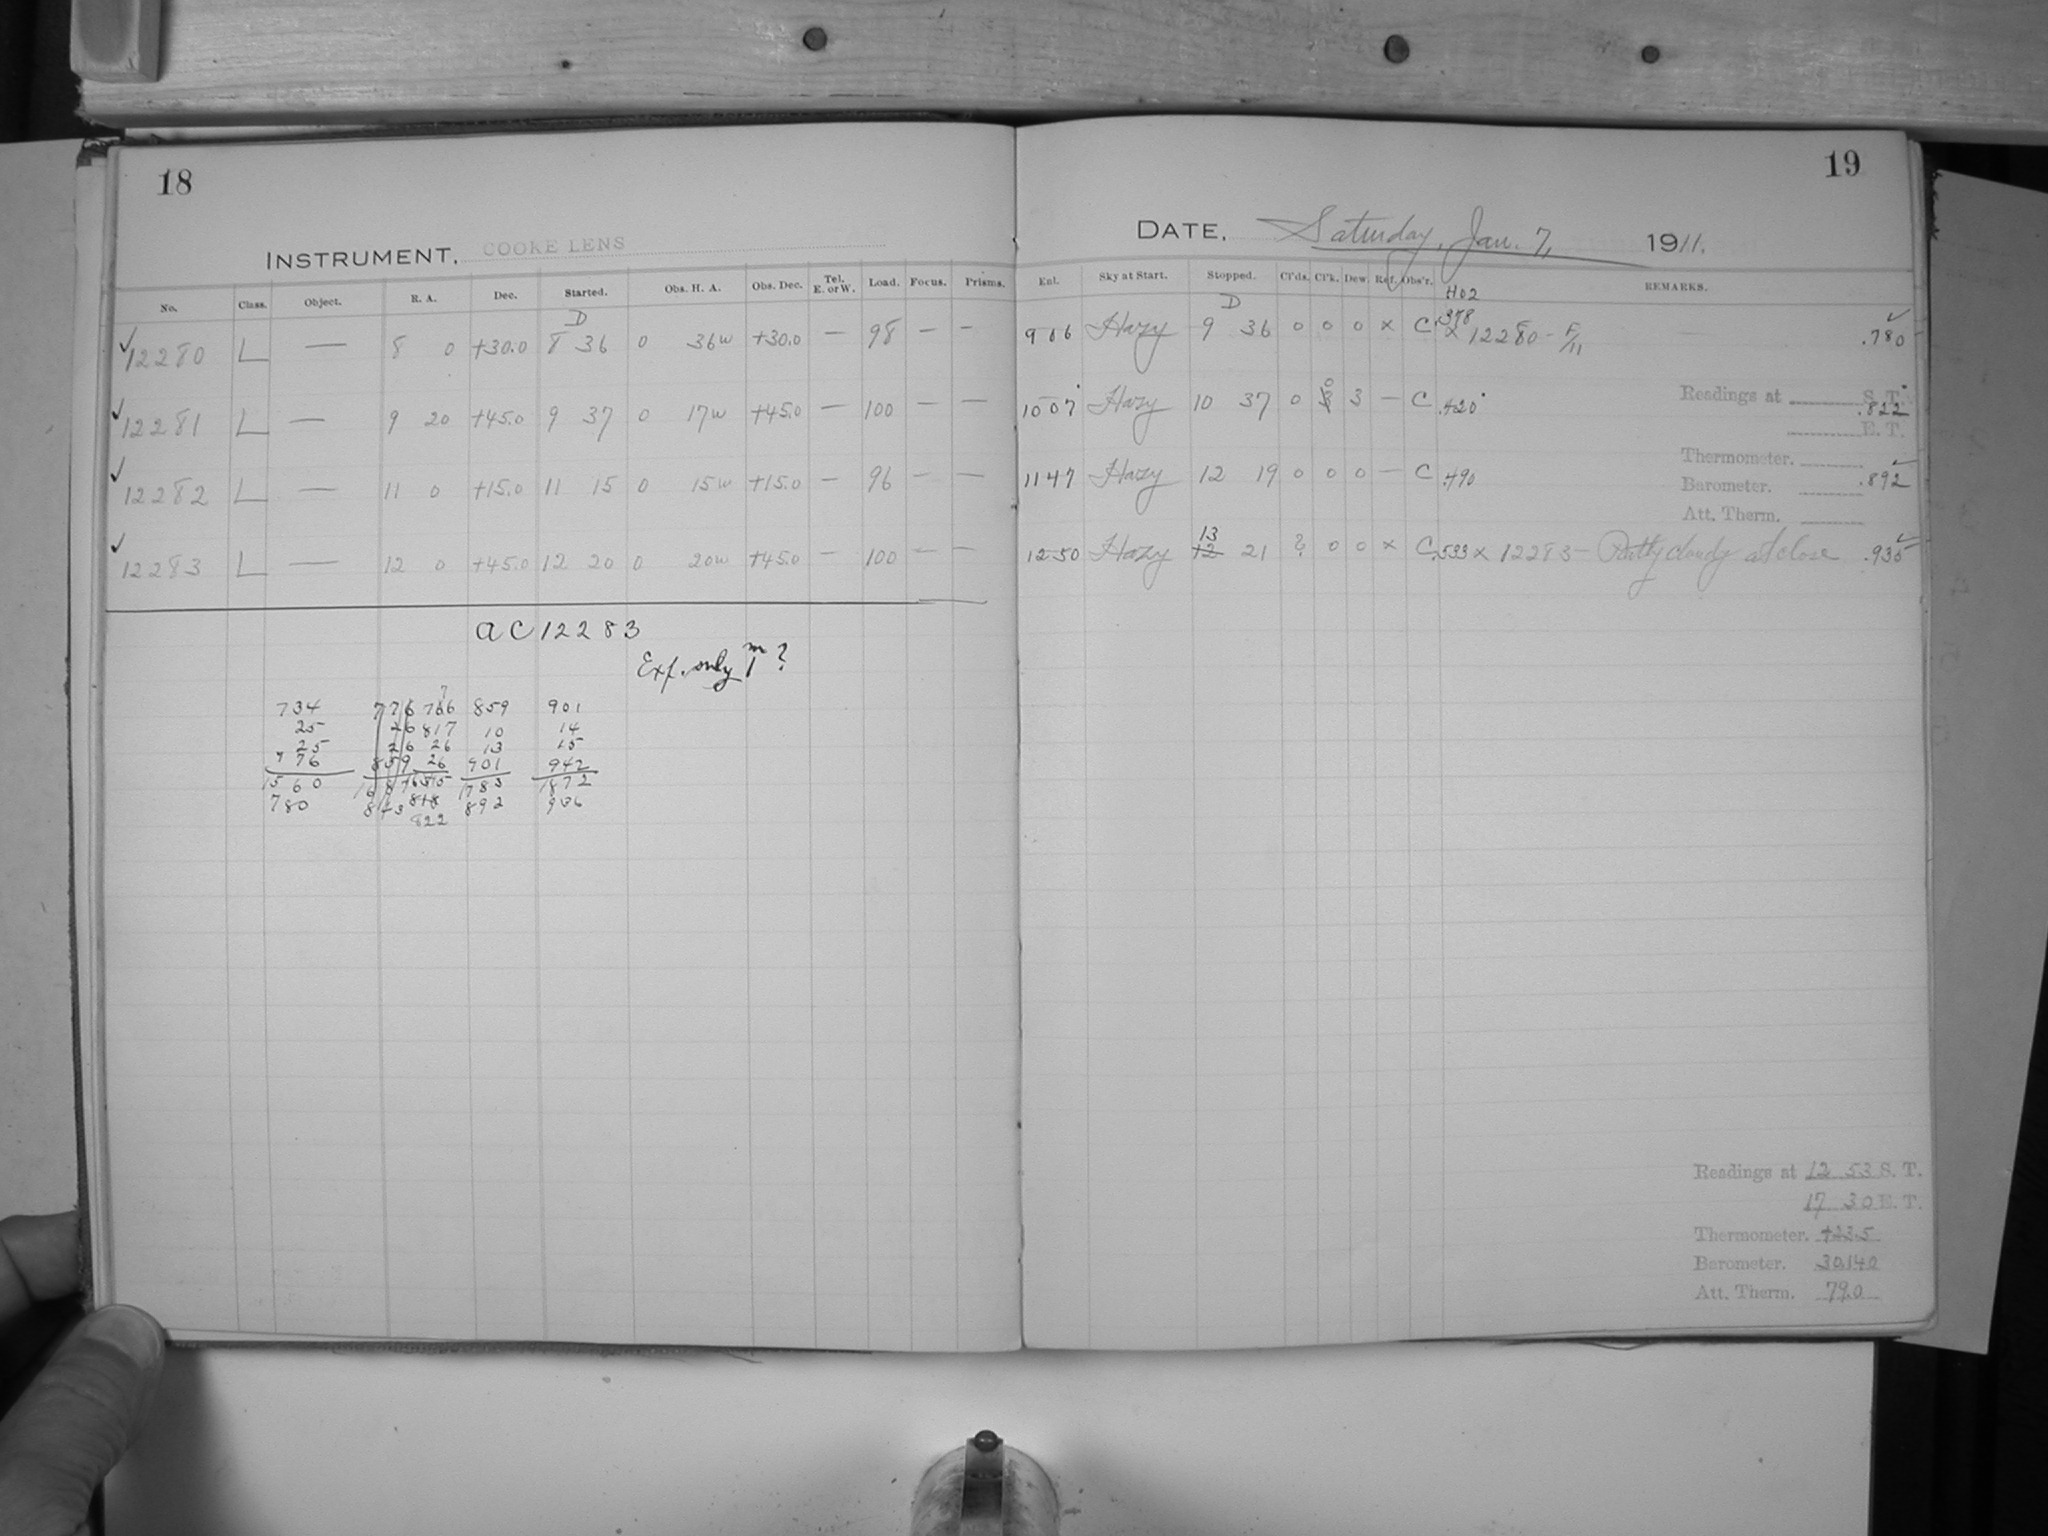 18
INSTRUMENT, COOKE LENS
No. Class. Object. R. A. Dec. Started. Obs. H. A. Obs. Dec. Tel. E. or W. Load. Focus. Prisms.
D
12280 L — 8 0 +30.0 8 36 0 36w +30.0 — 98 — —
12281 L — 9 20 +45.0 9 37 0 17w +45.0 — 100 — —
12282 L — 11 0 +15.0 11 15 0 15w +15.0 — 96 — —
12283 L — 12 0 +45.0 12 20 0 20w +45.0 — 100
AC12283
Exp. only 1m?
734 776 766 859 901
25 26 817 10 14
25 26 26 13 15
776 859 26 901 942
1560 1783 1872
780 843 818 892 936
822
19
DATE, Saturday, Jan. 7, 1911.
Enl. Sky at Start. Stopped. Cl'ds. Cl'k. Dew Ref. Obs'r. REMARKS.
D H02
906 Hazy 9 36 0 0 0 x C .378 x 12280 - F/11 .780
Readings at S. T.
1007 Hazy 10 37 0 0 3 — C .420 .822
E. T.
Thermometer.
1147 Hazy 12 19 0 0 0 — C .490 .892
Barometer.
Att. Therm.
13
1250 Hazy 12 21 ? 0 0 x C .533 x 12283 - Partly cloudy at close .935
Readings at 12 53 S. T.
17 30 E. T.
Thermometer. +23.5
Barometer. 30.140
Att. Therm. 79.0